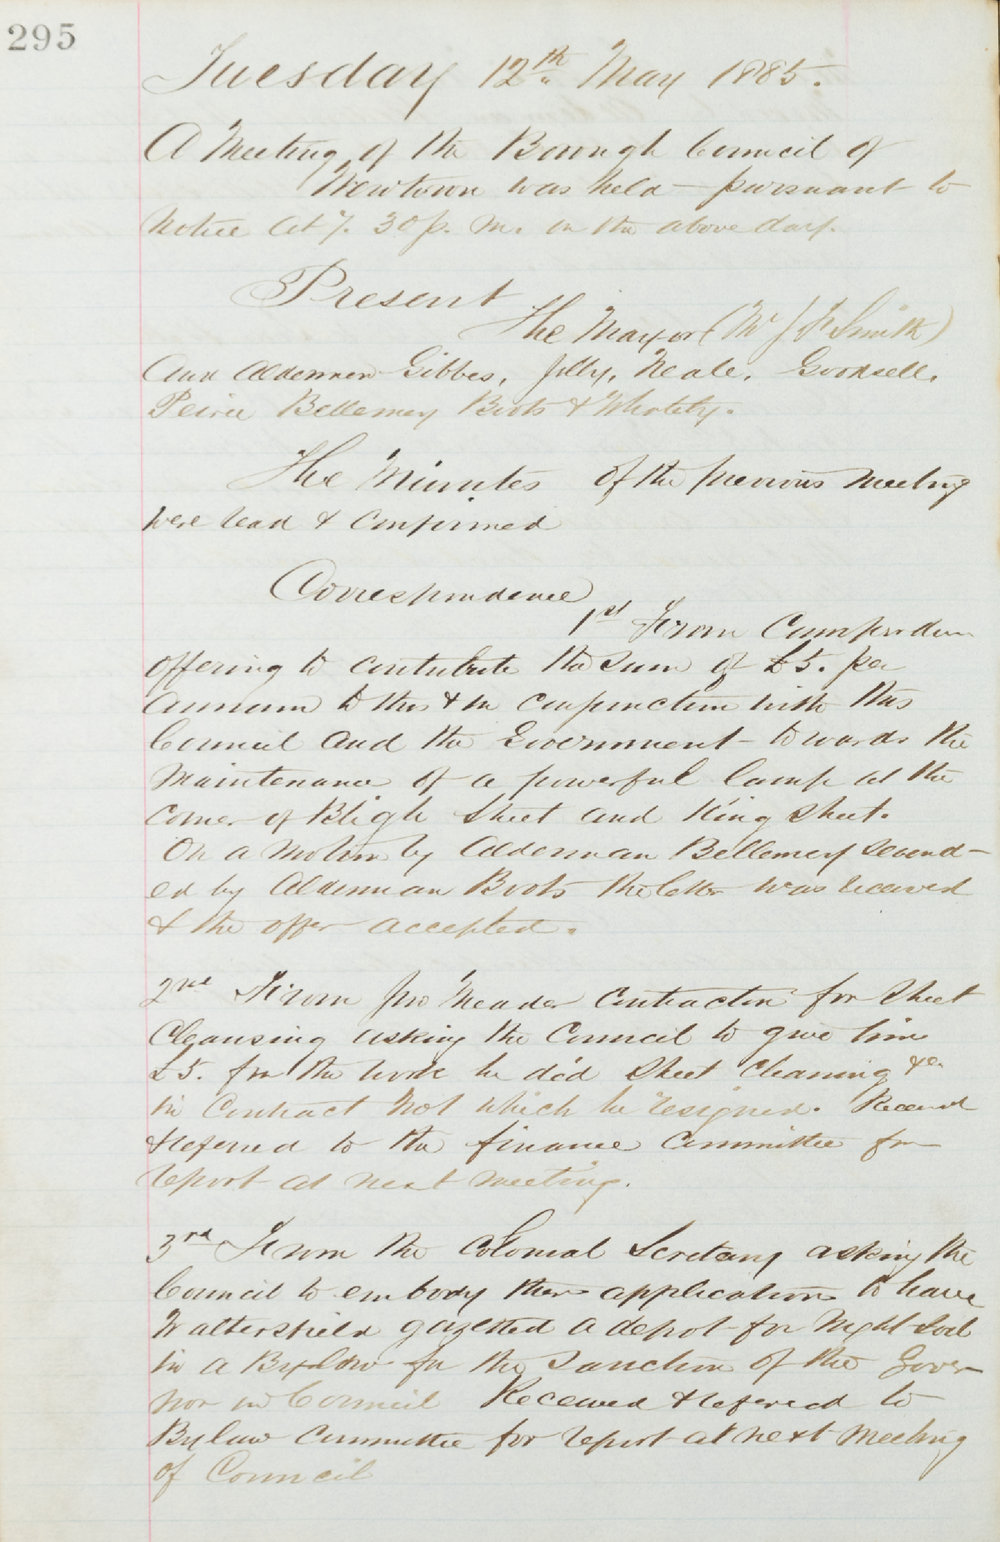 295
Tuesday 12th May 1885.
A Meeting of the Borough Council of
Newtown was held pursuant to
Notice at 7.30 p.m. on the above day.
Present
The Mayor (Mr J Smith)
and Aldermen Gibbes, Jolly, Neale, Goodsell,
Peirce Bellemey Boots & Whately.
The Minutes of the previous meeting
were read & confirmed
Correspondence
1st From
offering to contribute the sum of £5. per
annum to this & in conjunction with this
Council and the Government towards the
Maintenance of a powerful lamp at the
corner of Bligh Street and King Street.
On a motion by Alderman Bellemey second-
ed by Alderman Boots the letter was received
& the offer accepted.
2nd From Meader Contractor for Street
Cleansing asking the Council to give him
£5. for the work he did Street Cleaning &c.
in Contract No1 which he resigned. Received
& referred to the finance Committee for
report at next meeting.
3rd From the Colonial Secretary asking the
Council to embody their application to have
Waltersfield gazetted a depot for Night Soil
in a By-law for the Sanction of the Gover-
nor in Council Received & referred to
Bylaw Committee for report at next Meeting
of Council